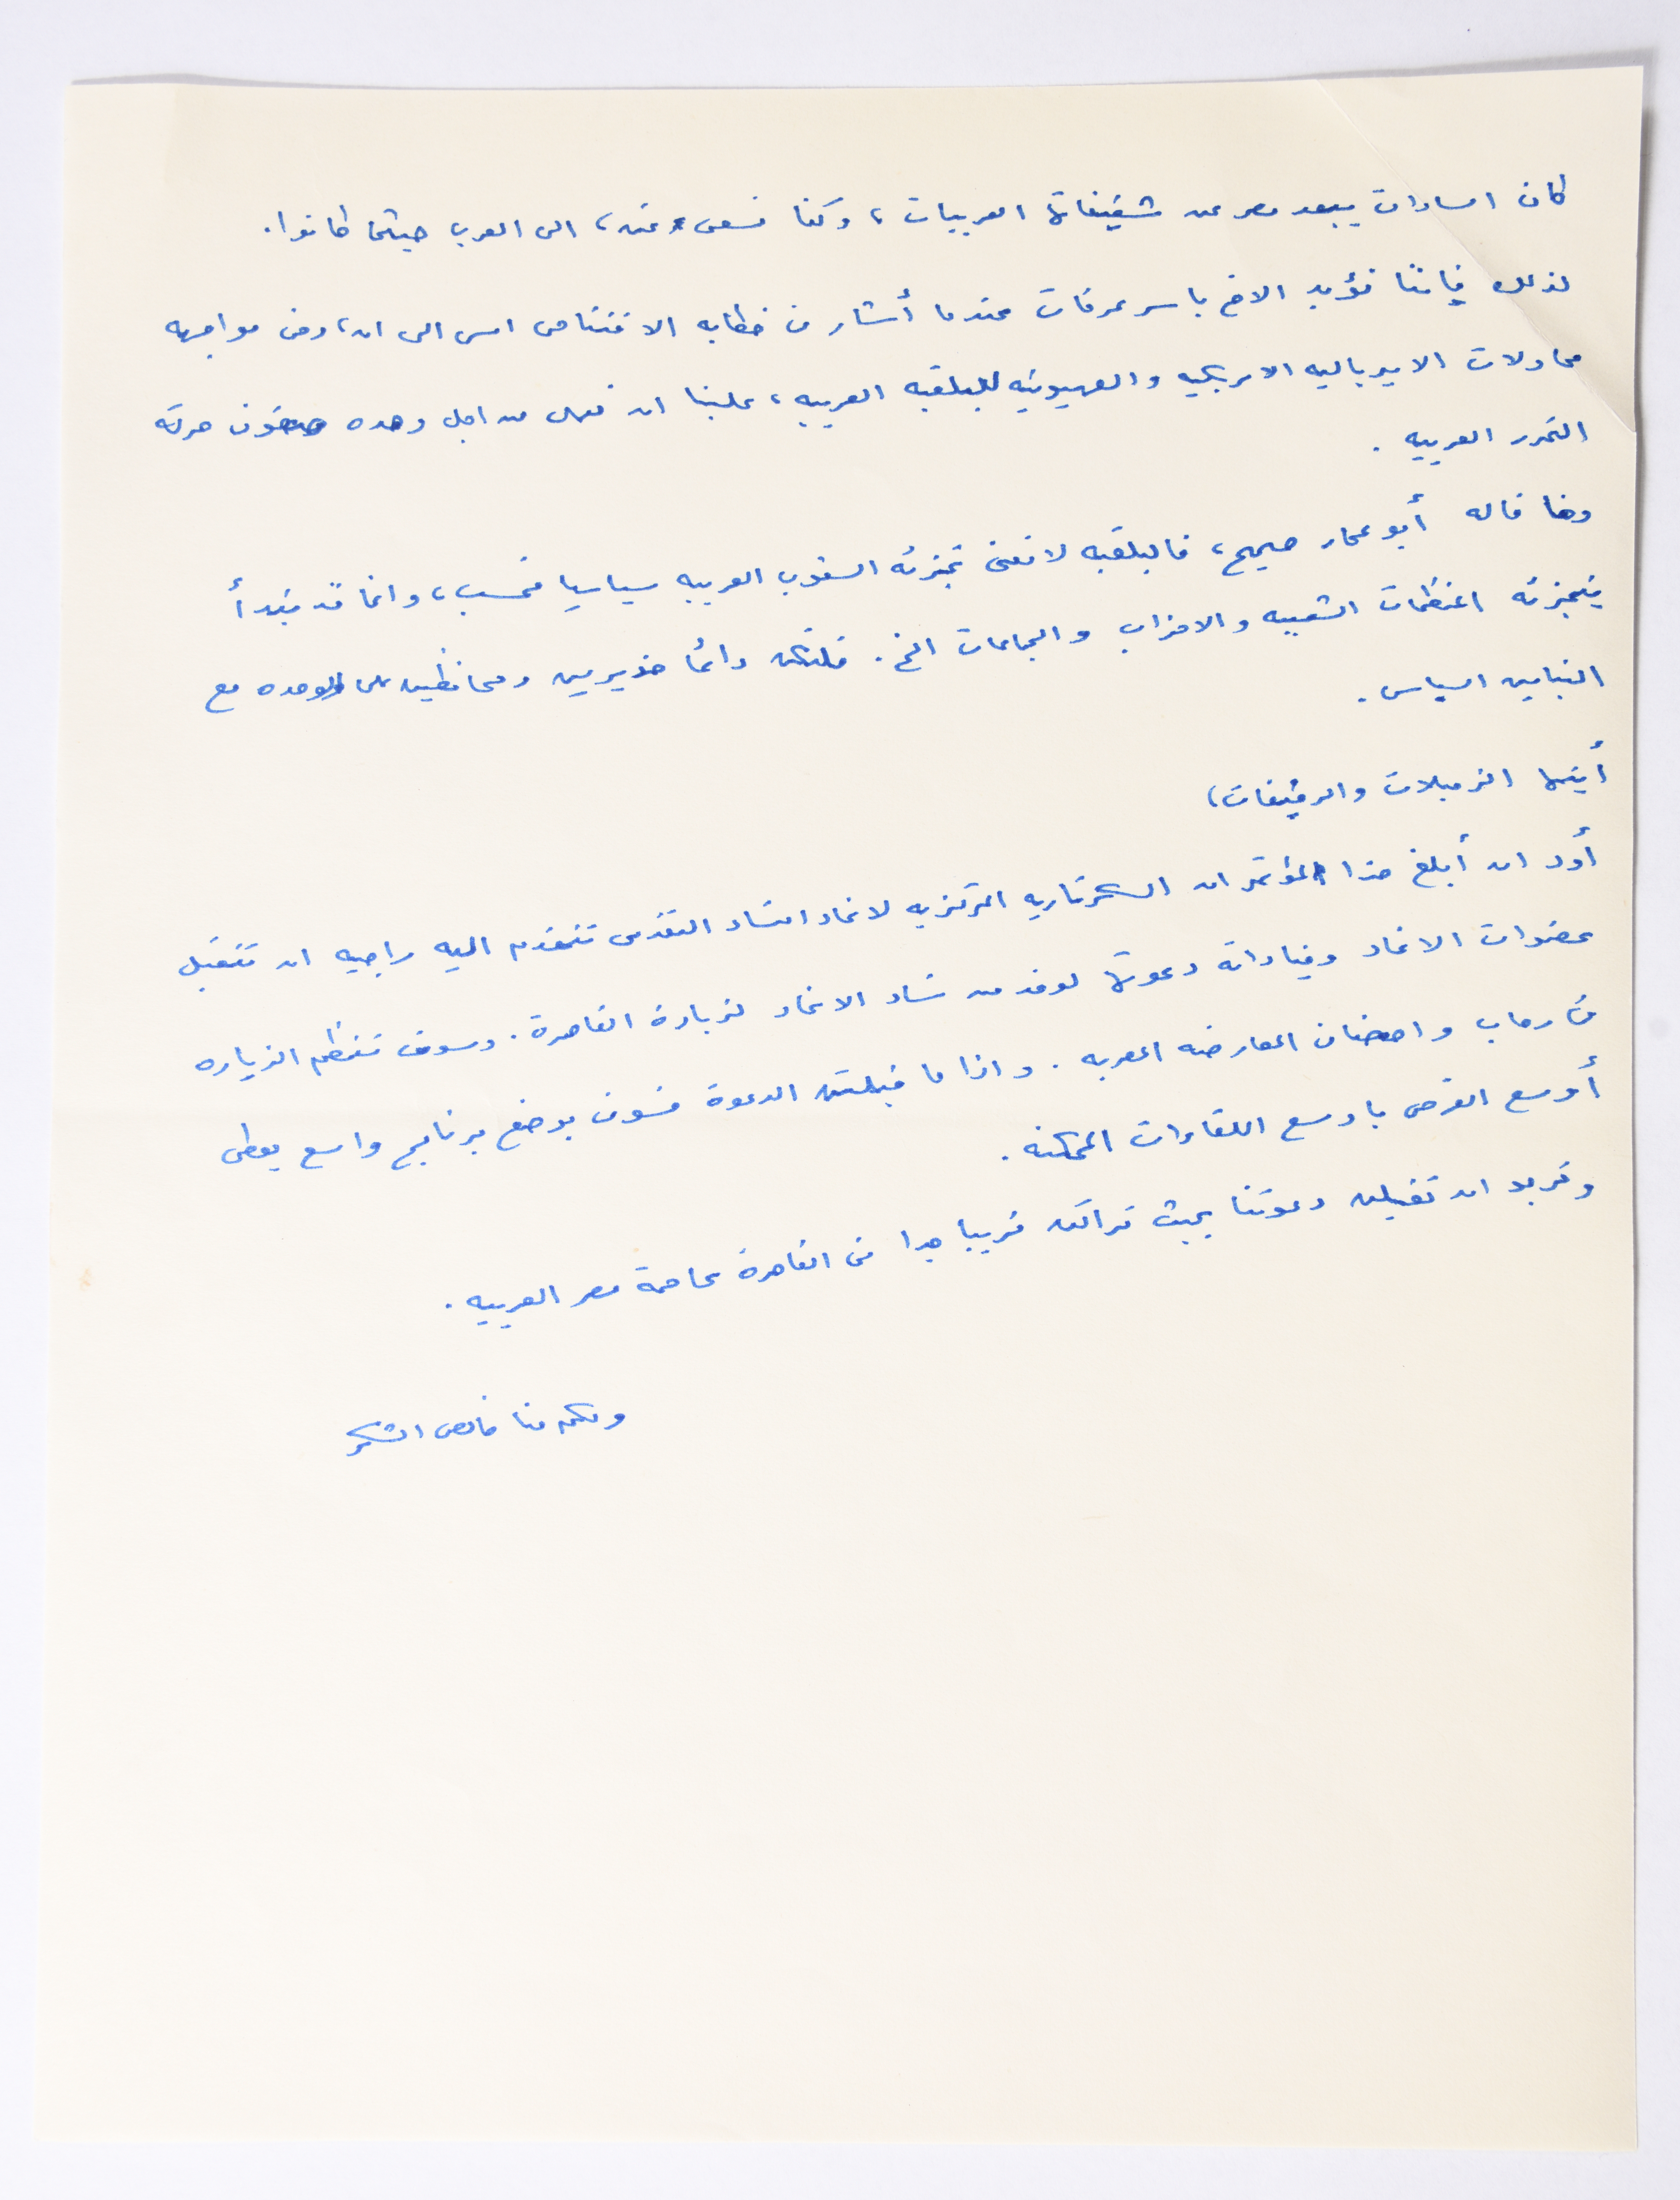 كان السادات يبعد مصر عن شقيقاتها العربيات، وكنا نسعى، نحن، الى العرب حيثما كانوا.
لذلك فإننا نؤيد الاخ ياسر عرفات عندما أشار في خطابه الافتتاحي امس الى ان، وفي مواجهه
محاولات الامبرياليه الامريكيه والصهيونيه للبلقنه العربيه، علينا ان نعمل من اجل وحده صفوف حركة
التحرر العربيه.
وما قاله أبو عمار صحيح، فالبلقنه لا تعنى تجزئه الشعوب العربيه سياسيا فحسب، وانما قد تبدأ
بتجزئه المنظمات الشعبيه والاحزاب والجماعات الخ. فلنكن دائما حذيرين ومحافظين على الوحده مع
التباين السياسى.
أيتها الزميلات والرفيقات،
أود ان أبلغ هذا المؤتمر ان السكرتاريه المركزيه لاتحاد النساء التقدمى تتقدم اليه راجيه ان تتقبل
عضوات الاتحاد وقياداته دعوتها لوفد من نساء الاتحاد لزيارة القاهرة. وسوف تنظم الزياره
فى رحاب واحضان المعارضه المصريه. واذا ما قبلتن الدعوة فسوف يوضع برنامج واسع يعطى
أوسع الفرص باوسع اللقاءات الممكنه.
ونريد ان تقبلن دعوتنا بحيث نراكن قريبا جدا فى القاهرة عاصمة مصر العربيه.
ولكم منا خالص الشكر